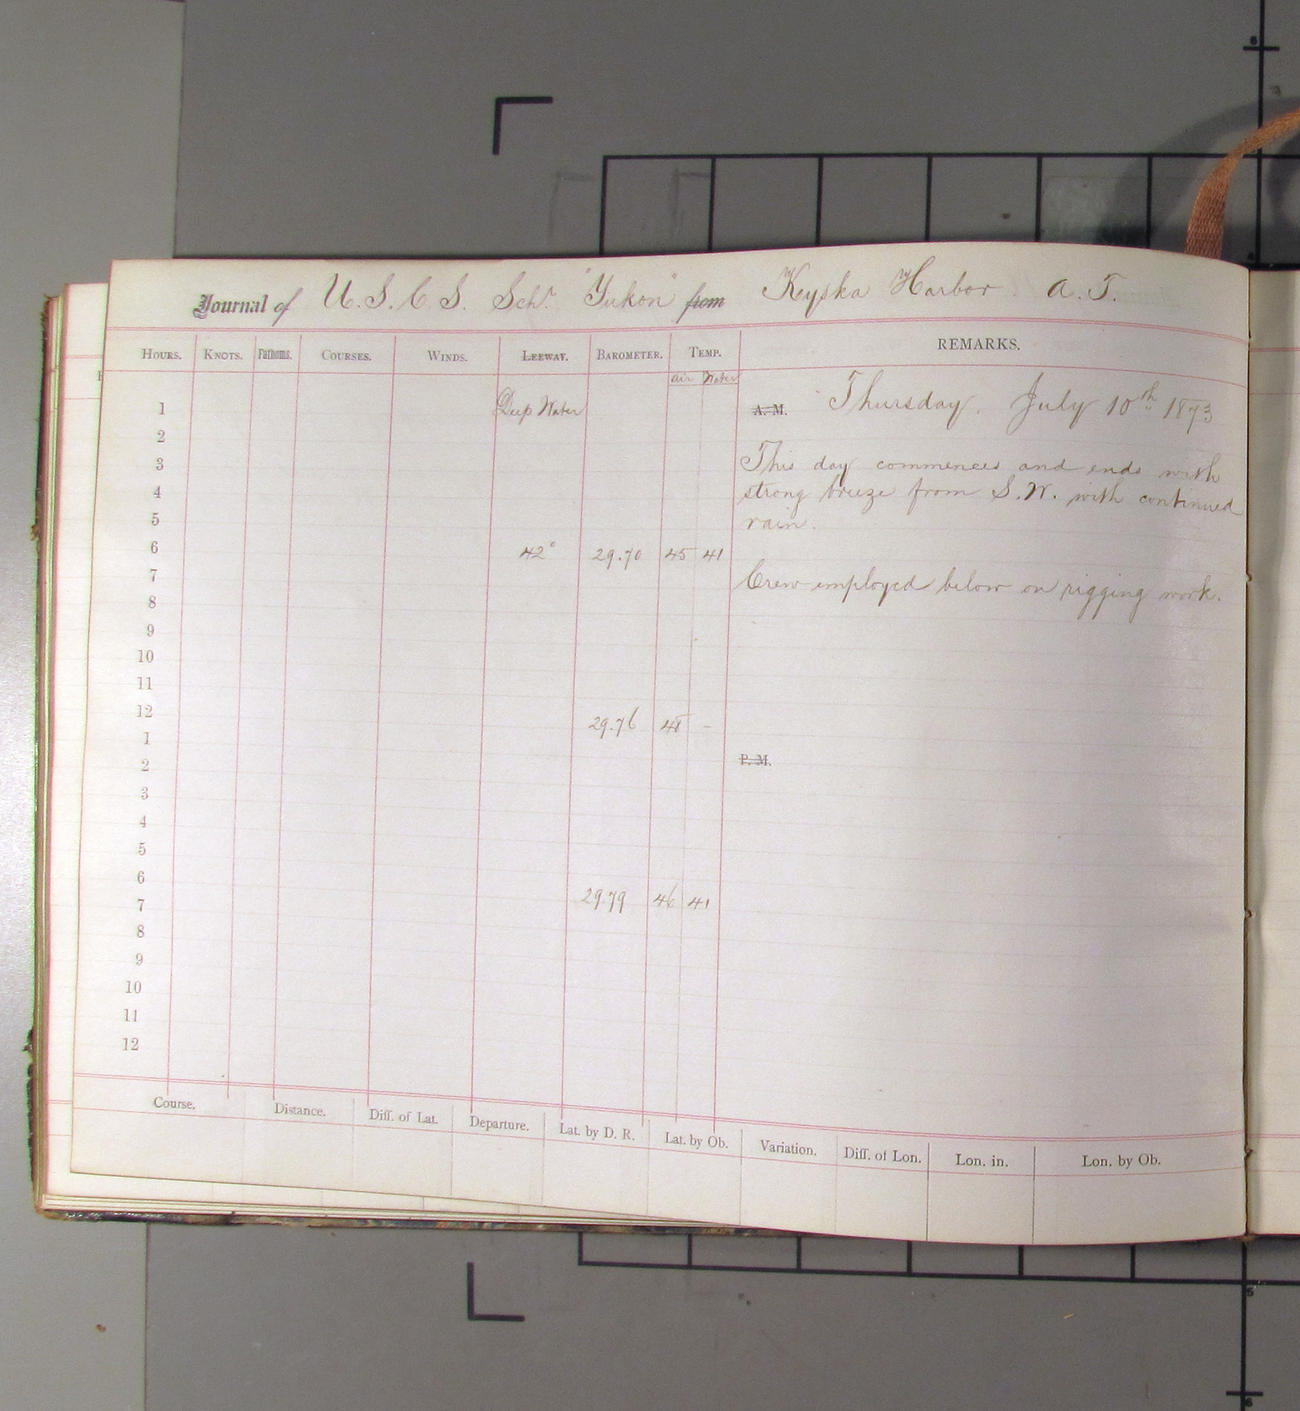 Journal of U. S. C. S. Schr. "Yukon" from Kyska Harbor A. T.
HOURS. KNOTS. Fathoms. COURSES. WINDS. LEEWAY. BAROMETER. TEMP. REMARKS.
Air Water
1 Deep Water A. M. Thursday. July 10th 1873
2
3 This day commences and ends with
4 strong breeze from S. W. with continued
5 rain.
6 42° 29.70 45 41
7 Crew employed below on rigging work.
8
9
10
11
12 29.76 45 -
1
2 P. M.
3
4
5
6
7 29.79 46 41
8
9
10
11
12
Course. Distance. Diff. of Lat. Departure. Lat. by D. R. Lat. by Ob. Variation. Diff. of Lon. Lon. in. Lon. by Ob.